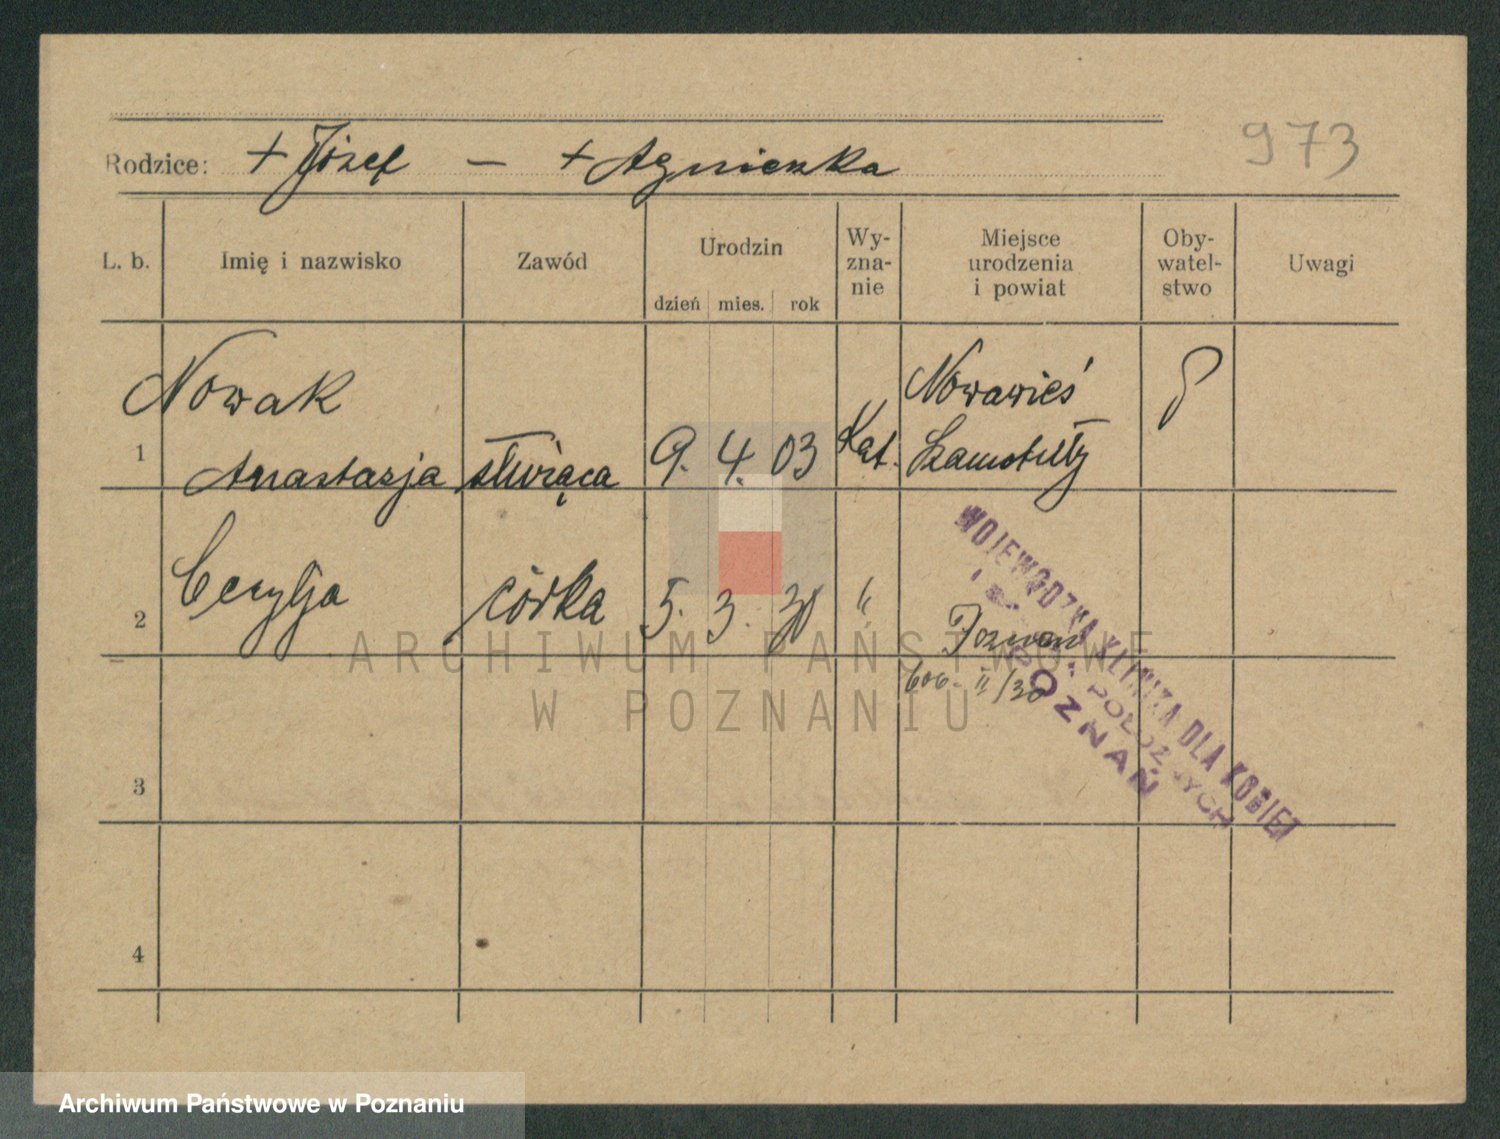 973
Rodzice: + Józef — + Agnieszka
L. b. Imię i nazwisko Zawód Urodzin Wy-zna-nie Miejsce urodzenia i powiat Oby-watel-stwo Uwagi
dzień mies. rok
Nowak Nowawieś
1 Anastazja służąca 9. 4. 03 Kat. Szamotuły
2 Cecylja córka 5. 3. 30 " Poznań
606 II/30
WOJEWÓDZKA KLINIKA DLA KOBIET
POŁOŻNYCH
POZNAŃ
3
4
ARCHIWUM PAŃSTWOWE
W POZNANIU
Archiwum Państwowe w Poznaniu